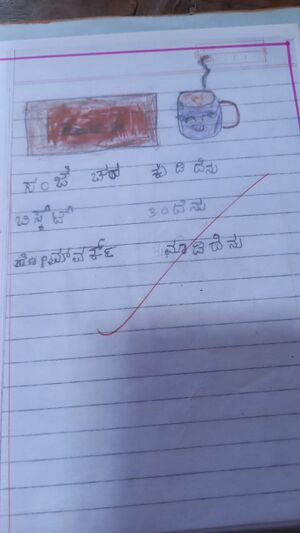 ಸಂಜೆ ಚಹ ಕುಡಿದೆನು
ಬಿಸ್ಕೆಟ್ ತಿಂದೆನು
ಹೋಮವರ್ಕ್ ಮಾಡಿದೆನು